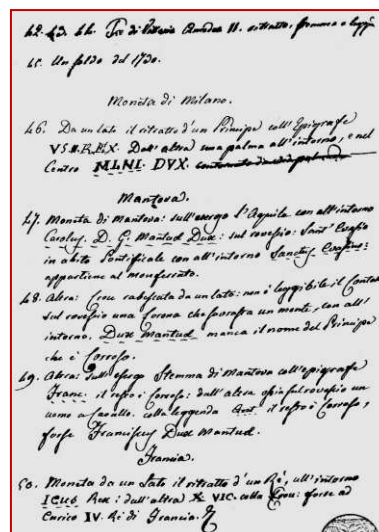 42. 43. 44. Tre di Vittorio Amedeo II. ritratto, stemma e legg
45. Un soldo del 1730.
Moneta di Milano.
46. Da un lato il ritratto d'un Principe coll'Epigrafe
VSII.REX. Dall'altra una palma all'intorno, e nel
Centro MLNI. DVX.
Mantova.
47. Moneta di Mantova: sull'esergo l'Aquila con all'intorno
Carolus. D. G. Mantud Dux: sul rovescio: Sant'Evasio
in abito Pontificale con all'intorno Sanctus Evasius:
appartiene al monferrato.
48. Altra: Croce rabescata da un lato: non è leggibile il Contorno
sul rovescio una Corona che sovrasta un monte, con all'
intorno. Dux Mantud manca il nome del Principe
che è Corroso.
49. Altra: Sull'esergo Stemma di Mantova coll'epigrafe
Franc. il resto è Corroso: dall'altra ossia sul rovescio un
uomo a Cavallo. colla leggenda il resto è Corroso,
forse Franciscus Dux Mantud.
Francia.
50. Moneta da un lato il ritratto d'un Rè, all'intorno
ICUS Rex: dall'altra VIC. colla Croce: forse ad
Enrico IV. Rè di Francia.